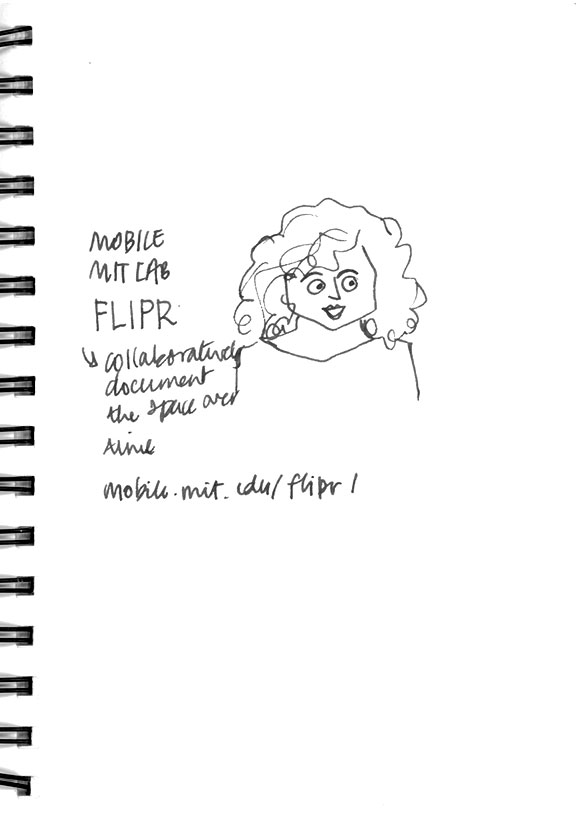 MOBILE
MIT LAB
FLIPR
↳ collaboratively
document
the space over
mobile.mit.edu/flipr/